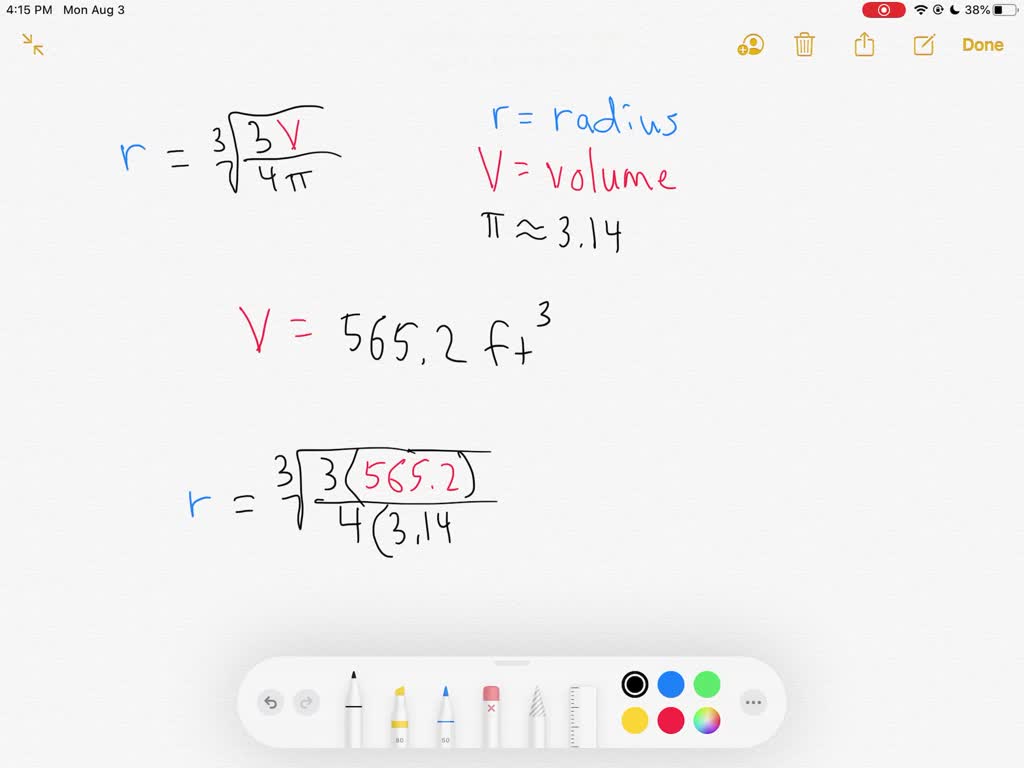 4:15 PM Mon Aug 3 38%
Done
r = ∛(3V / 4π)
r = radius
V = volume
π ≈ 3.14
V = 565.2 ft³
r = ∛(3(565.2) / 4(3.14
80 50